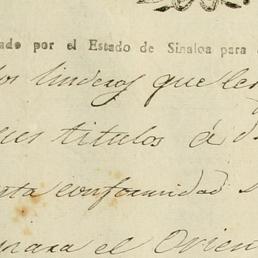 ado por el Estado de Sinaloa para
los linderos que le
sus titulos á d
nta conformidad s
para el Orien